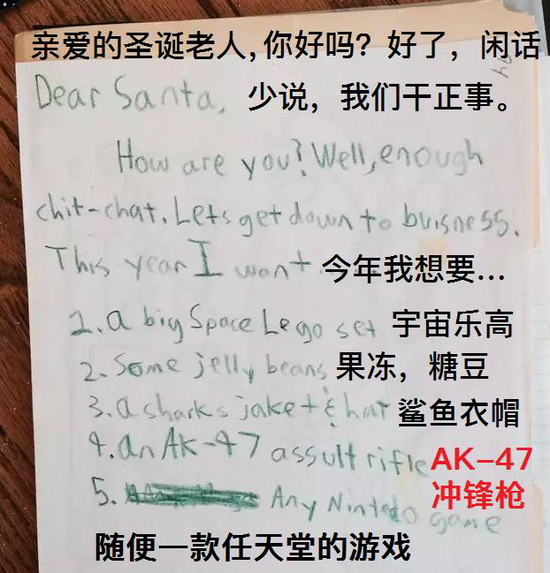 亲爱的圣诞老人,你好吗？好了，闲话
Dear Santa, 少说，我们干正事。
How are you? Well, enough
chit-chat. Lets get down to buisness.
This year I want 今年我想要...
1. a big Space Lego set 宇宙乐高
2. Some jelly beans 果冻，糖豆
3. a sharks jaket & hat 鲨鱼衣帽
4. an AK-47 assult rifle AK-47
冲锋枪
5. Any Nintedo game
随便一款任天堂的游戏